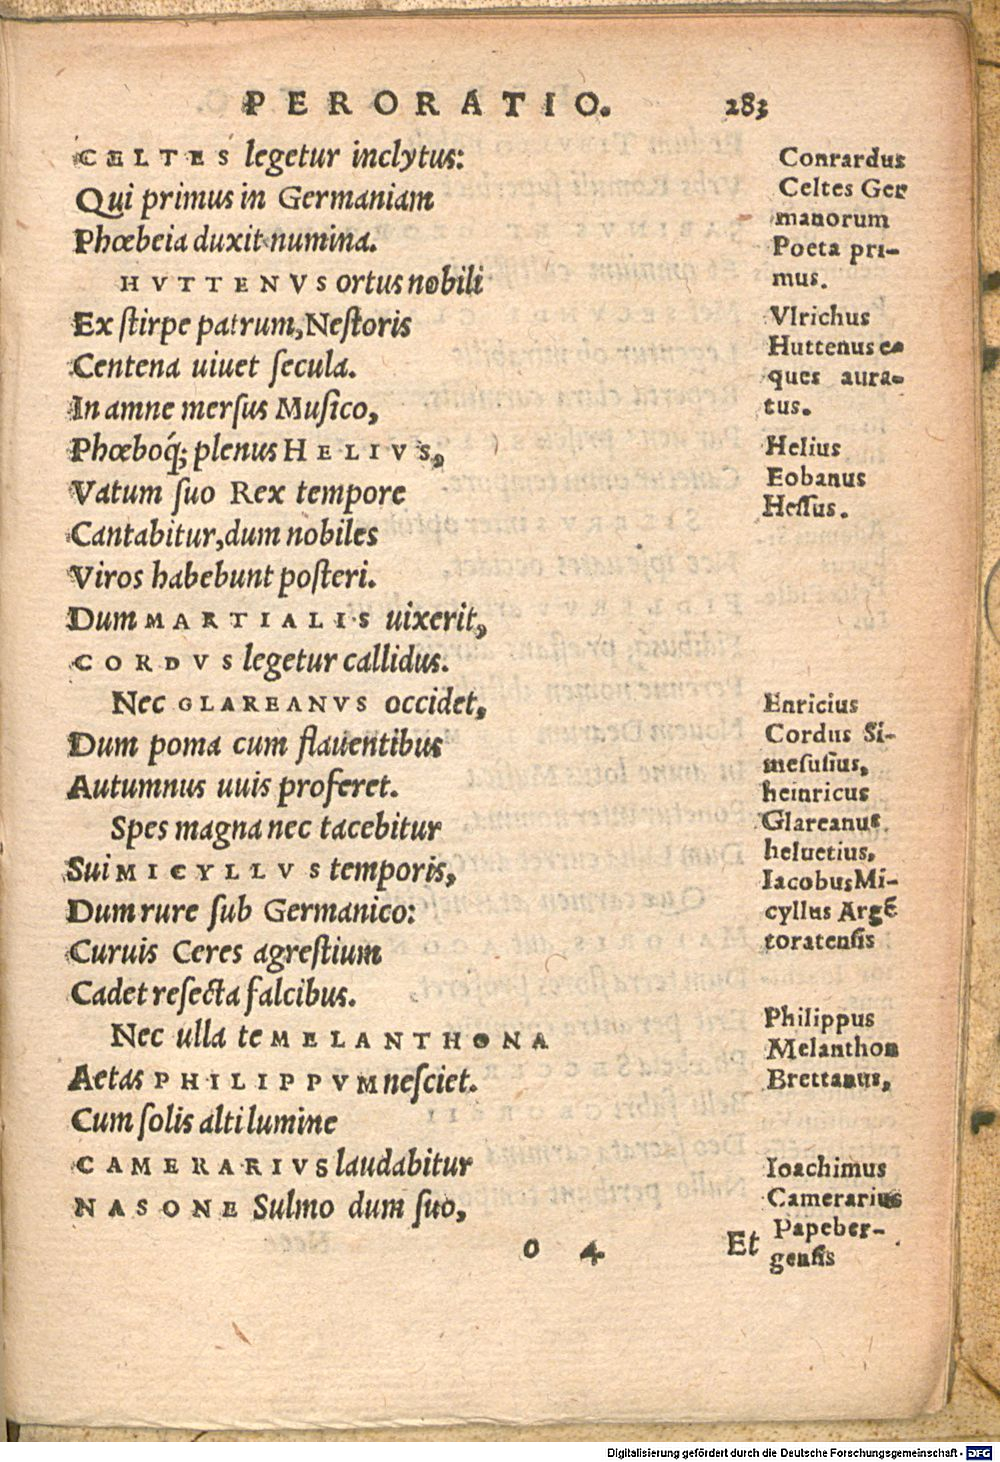 PERORATIO. 283
CELTES legetur inclytus:
Qui primus in Germaniam
Phœbeia duxit numina.
HVTTENVS ortus nobili
Ex ſtirpe patrum, Neſtoris
Centena uiuet ſecula.
In amne merſus Muſico,
Phœboq́; plenus HELIVS,
Vatum ſuo Rex tempore
Cantabitur, dum nobiles
Viros habebunt poſteri.
Dum MARTIALIS uixerit,
CORDVS legetur callidus.
Nec GLAREANVS occidet,
Dum poma cum flauentibus
Autumnus uuis proferet.
Spes magna nec tacebitur
Sui MICYLLVS temporis,
Dum rure ſub Germanico:
Curuis Ceres agreſtium
Cadet reſecta falcibus.
Nec ulla te MELANTHONA
Aetas PHILIPPVM neſciet.
Cum ſolis alti lumine
CAMERARIVS laudabitur
NASONE Sulmo dum ſuo,
o 4 Et
Conrardus
Celtes Ger
manorum
Poeta pri-
mus.
Vlrichus
Huttenus e-
ques aura-
tus.
Helius
Eobanus
Heſſus.
Enricius
Cordus Si-
meſuſius,
heinricus
Glareanus
heluetius,
Iacobus Mi-
cyllus Argẽ
toratenſis
Philippus
Melanthon
Brettanus,
Ioachimus
Camerarius
Papeber-
genſis
Digitalisierung gefördert durch die Deutsche Forschungsgemeinschaft - DFG